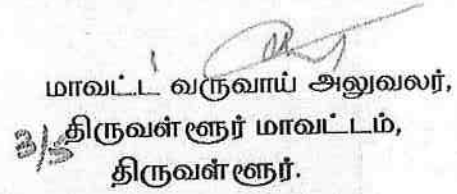 மாவட்ட வருவாய் அலுவலர்,
திருவள்ளூர் மாவட்டம்,
திருவள்ளூர்.